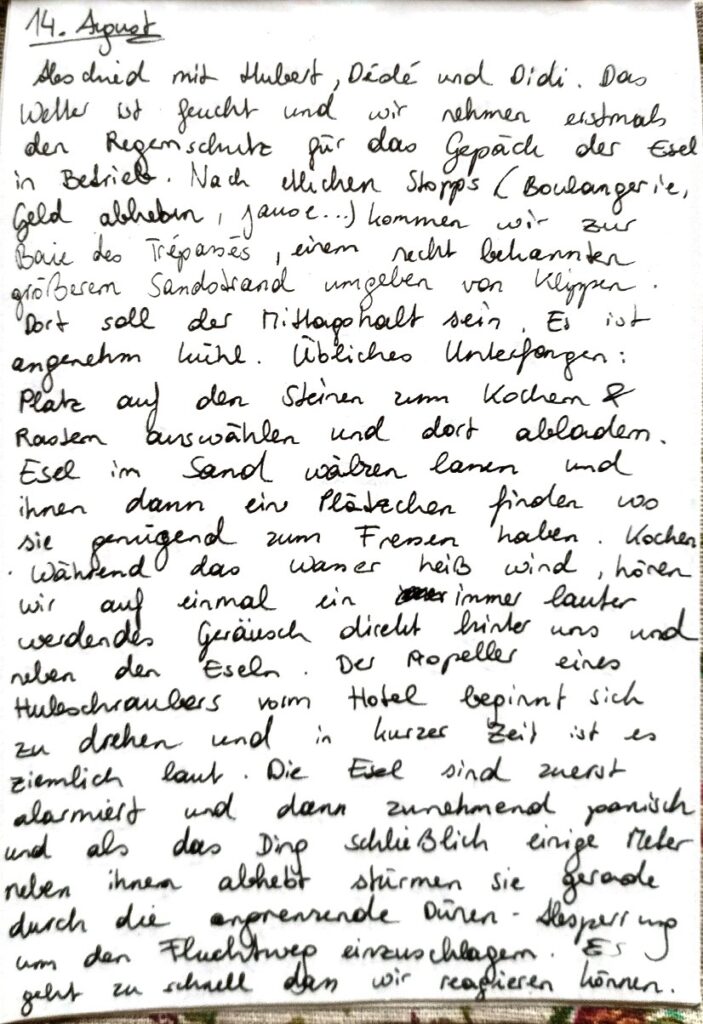 14. August
Abschied mit Hubert, Dédé und Didi. Das
Wetter ist feucht und wir nehmen erstmals
den Regenschutz für das Gepäck der Esel
in Betrieb. Nach etlichen Stopps (Boulangerie,
Geld abheben, Jause...) kommen wir zur
Baie des Trépassés, einem recht bekannten
größerem Sandstrand umgeben von Klippen.
Dort soll der Mittagshalt sein. Es ist
angenehm kühl. Übliches Unterfangen:
Platz auf den Steinen zum Kochen &
Rasten auswählen und dort abladen.
Esel im Sand wälzen lassen und
ihnen dann ein Plätzchen finden wo
sie genügend zum Fressen haben. Kochen
. Während das Wasser heiß wird, hören
wir auf einmal ein immer lauter
werdendes Geräusch direkt hinter uns und
neben den Eseln. Der Propeller eines
Hubschraubers vorm Hotel beginnt sich
zu drehen und in kurzer Zeit ist es
ziemlich laut. Die Esel sind zuerst
alarmiert und dann zunehmend panisch
und als das Ding schließlich einige Meter
neben ihnen abhebt stürmen sie gerade
durch die angrenzende Dünen-Absperrung
um den Fluchtweg einzuschlagen. Es
geht zu schnell dass wir reagieren können.